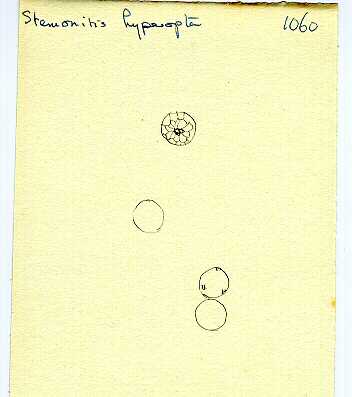 Stemonitis hyperopta 1060